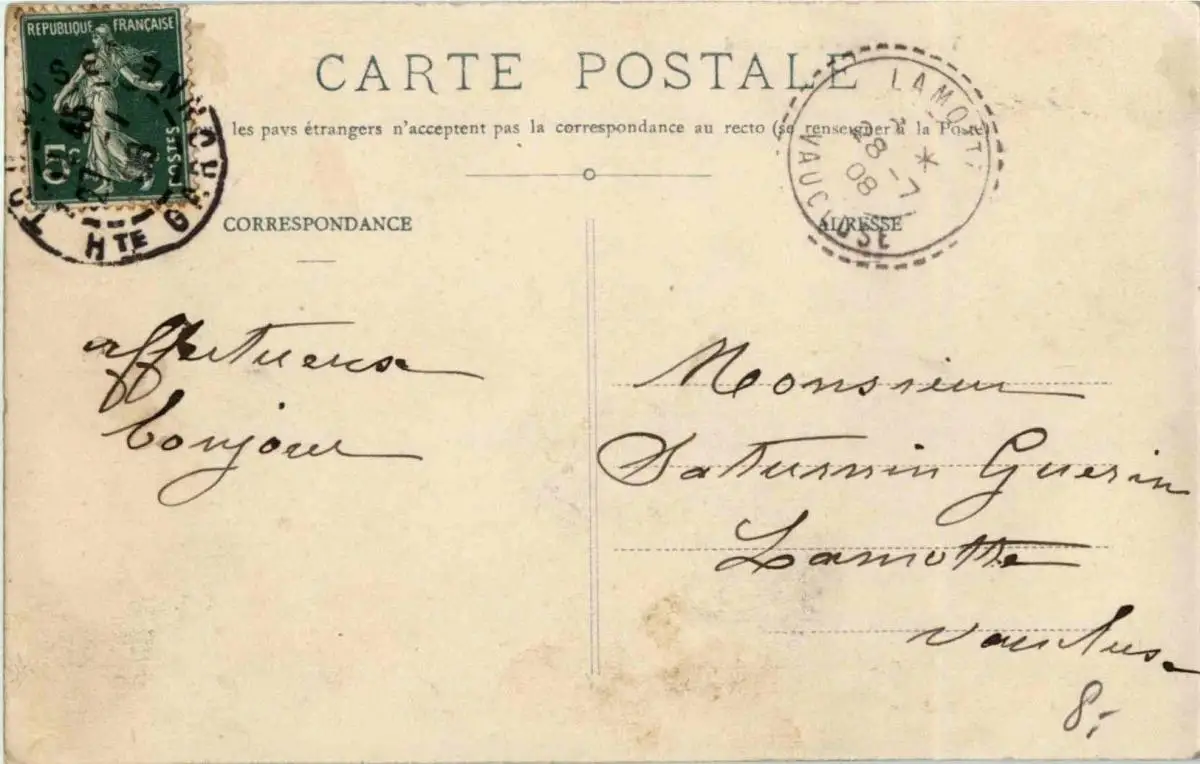 REPUBLIQUE FRANÇAISE
POSTES
HTE GARONNE
CARTE POSTALE
les pays étrangers n'acceptent pas la correspondance au recto (se renseigner à la Poste)
LAMOTTE
28 - 7
08
VAUCLUSE
CORRESPONDANCE
ADRESSE
affectueux
bonjour
Monsieur
Saturnin Guerin
Lamotte
Vaucluse
8,-